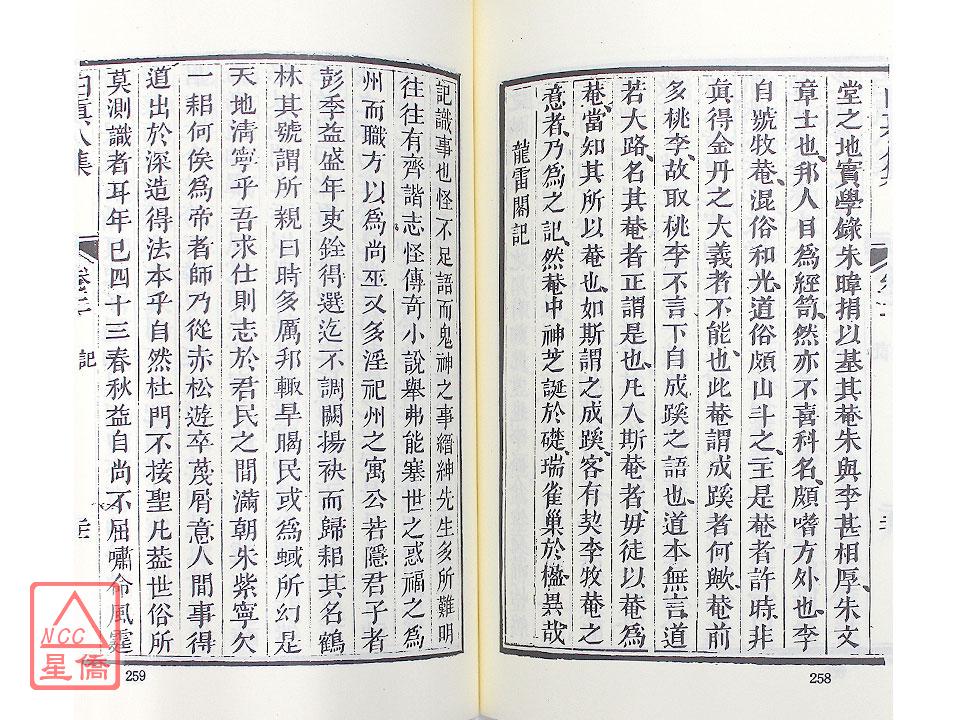 堂之地實學錄朱暐捐以基其菴朱與李甚相厚朱文
章士也邦人目爲經笥然亦不喜科名頗嗜方外也李
自號牧菴混俗和光道俗頗山斗之王是菴者許時非
眞得金丹之大義者不能也此菴謂成蹊者何歟菴前
多桃李故取桃李不言下自成蹊之語也道本無言道
若大路名其菴者正謂是也凡入斯菴者毋徒以菴爲
菴當知其所以菴也如斯謂之成蹊客有契李牧菴之
意者乃爲之記然菴中神芝誕於礎瑞雀巢於楹異哉
龍雷閣記
記識事也怪不足語而鬼神之事縉紳先生多所難明
往往有齊諧志怪傳奇小說舉弗能塞世之惑福之爲
州而職方以爲尚巫又多淫祀州之寓公若隱君子者
彭季益盛年吏銓得選迄不調闕揚袂而歸耜其名鶴
林其號謂所親曰時多厲邦輙旱暍民或爲蜮所幻是
天地清寧乎吾求仕則志於君民之間滿朝朱紫寧欠
一耜何俟爲帝者師乃從赤松遊卒蔑屑意人間事得
道出於深造得法本乎自然杜門不接聖凡葢世俗所
莫測識者耳年巳四十三春秋益自尚不屈嘯命風霆
白真人集
卷二
記
258
259
NCC
星僑